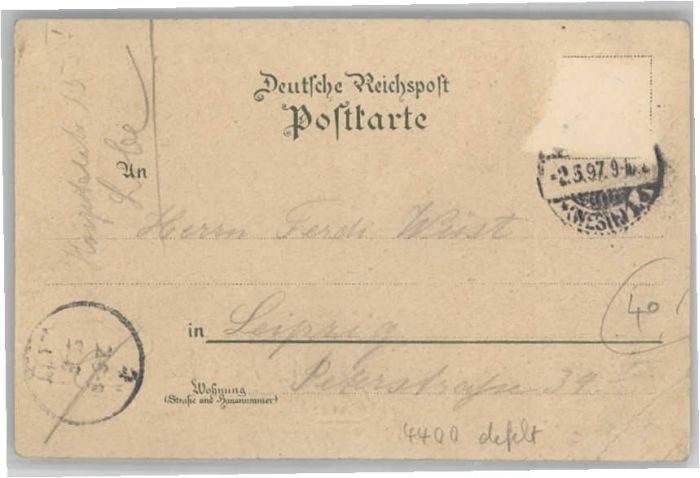 Deutsche Reichspost
Postkarte
An
Herrn Ferdi Wüst
in Leipzig
Wohnung
(Straße und Hausnummer)
Peterstraße 39
-2.5.97. 9-
40
4400 defekt